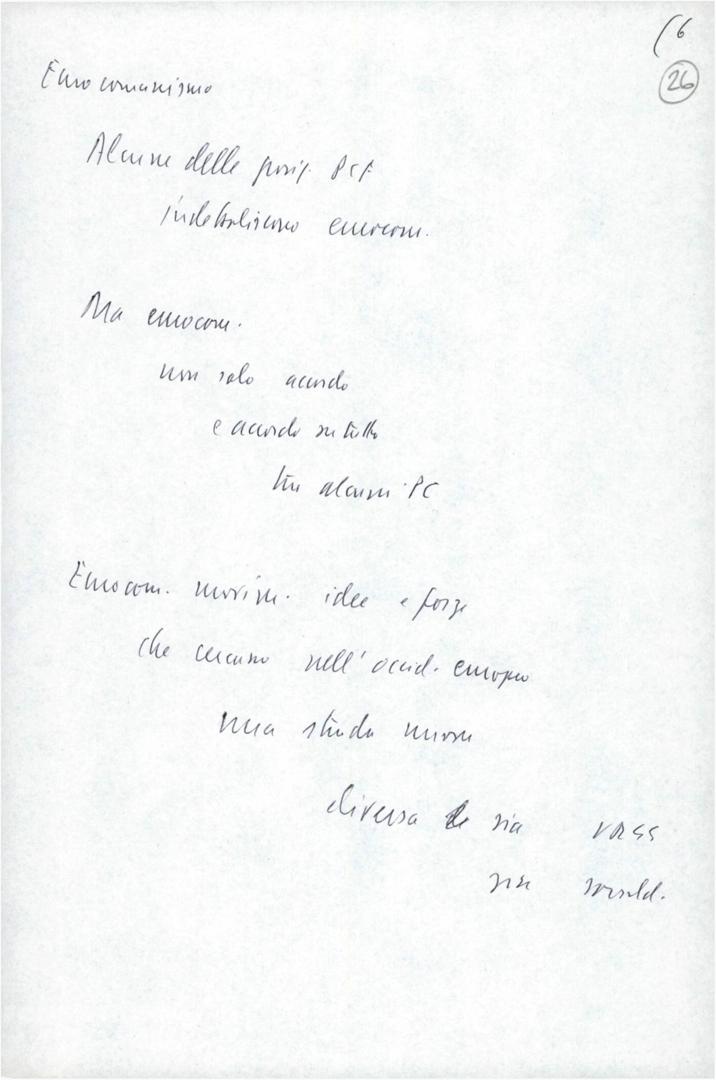 (6
26
Eurocomunismo
Alcune delle posiz. PCF
indeboliscono eurocom.
Ma eurocom.
non solo accordo
e accordo su tutto
tra alcuni PC
Eurocom. movim. idee e forze
che cercano nell'occid. europeo
una strada nuova
diversa da sia URSS
sia sociald.